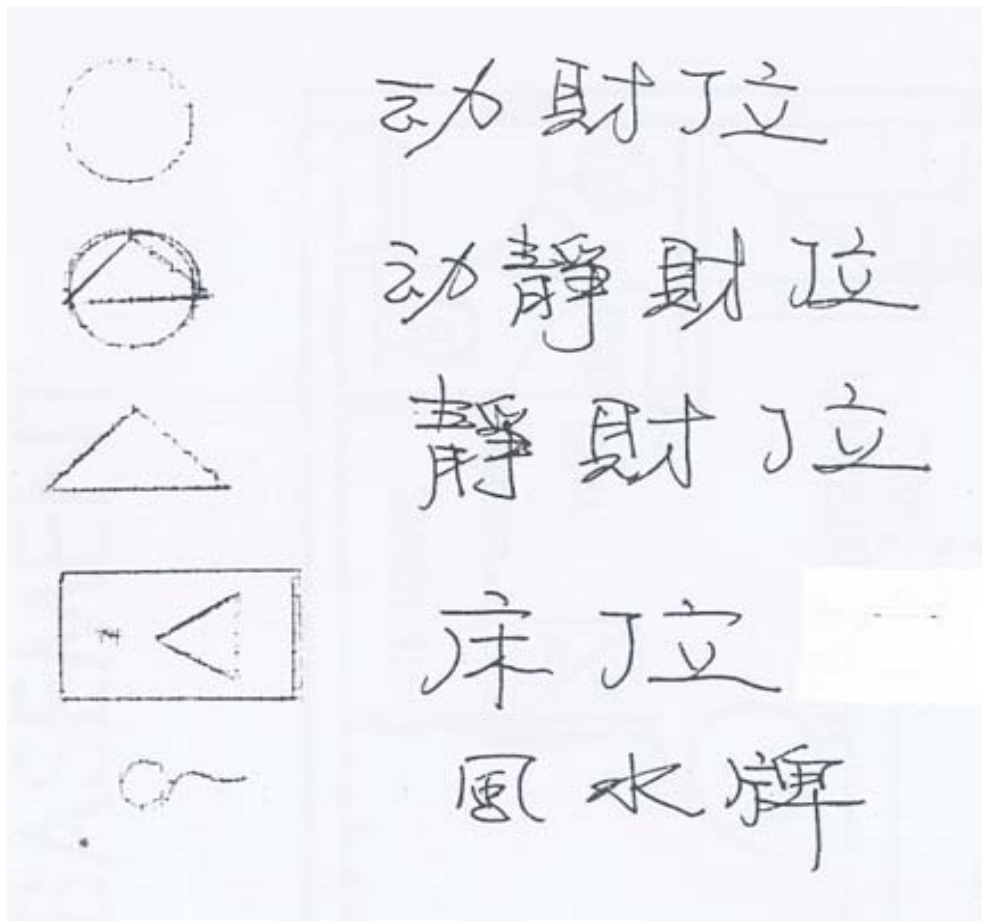 动財位
动靜財位
靜財位
床位
風水牌